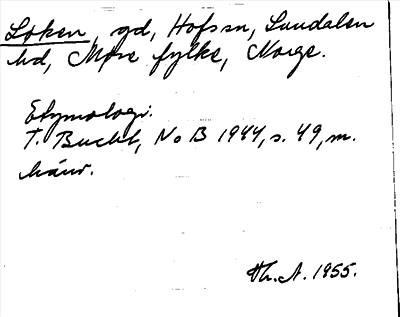 Løken, gd, Hofs sn, Sundalen
hd, Møre fylke, Norge.
Etymologi:
T. Bucht, NoB 1944, s. 49, m.
hänv.
Th. A. 1955.